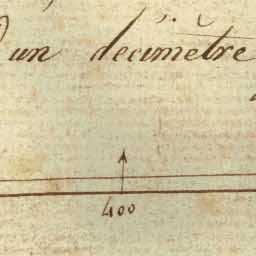 un decimètre
400